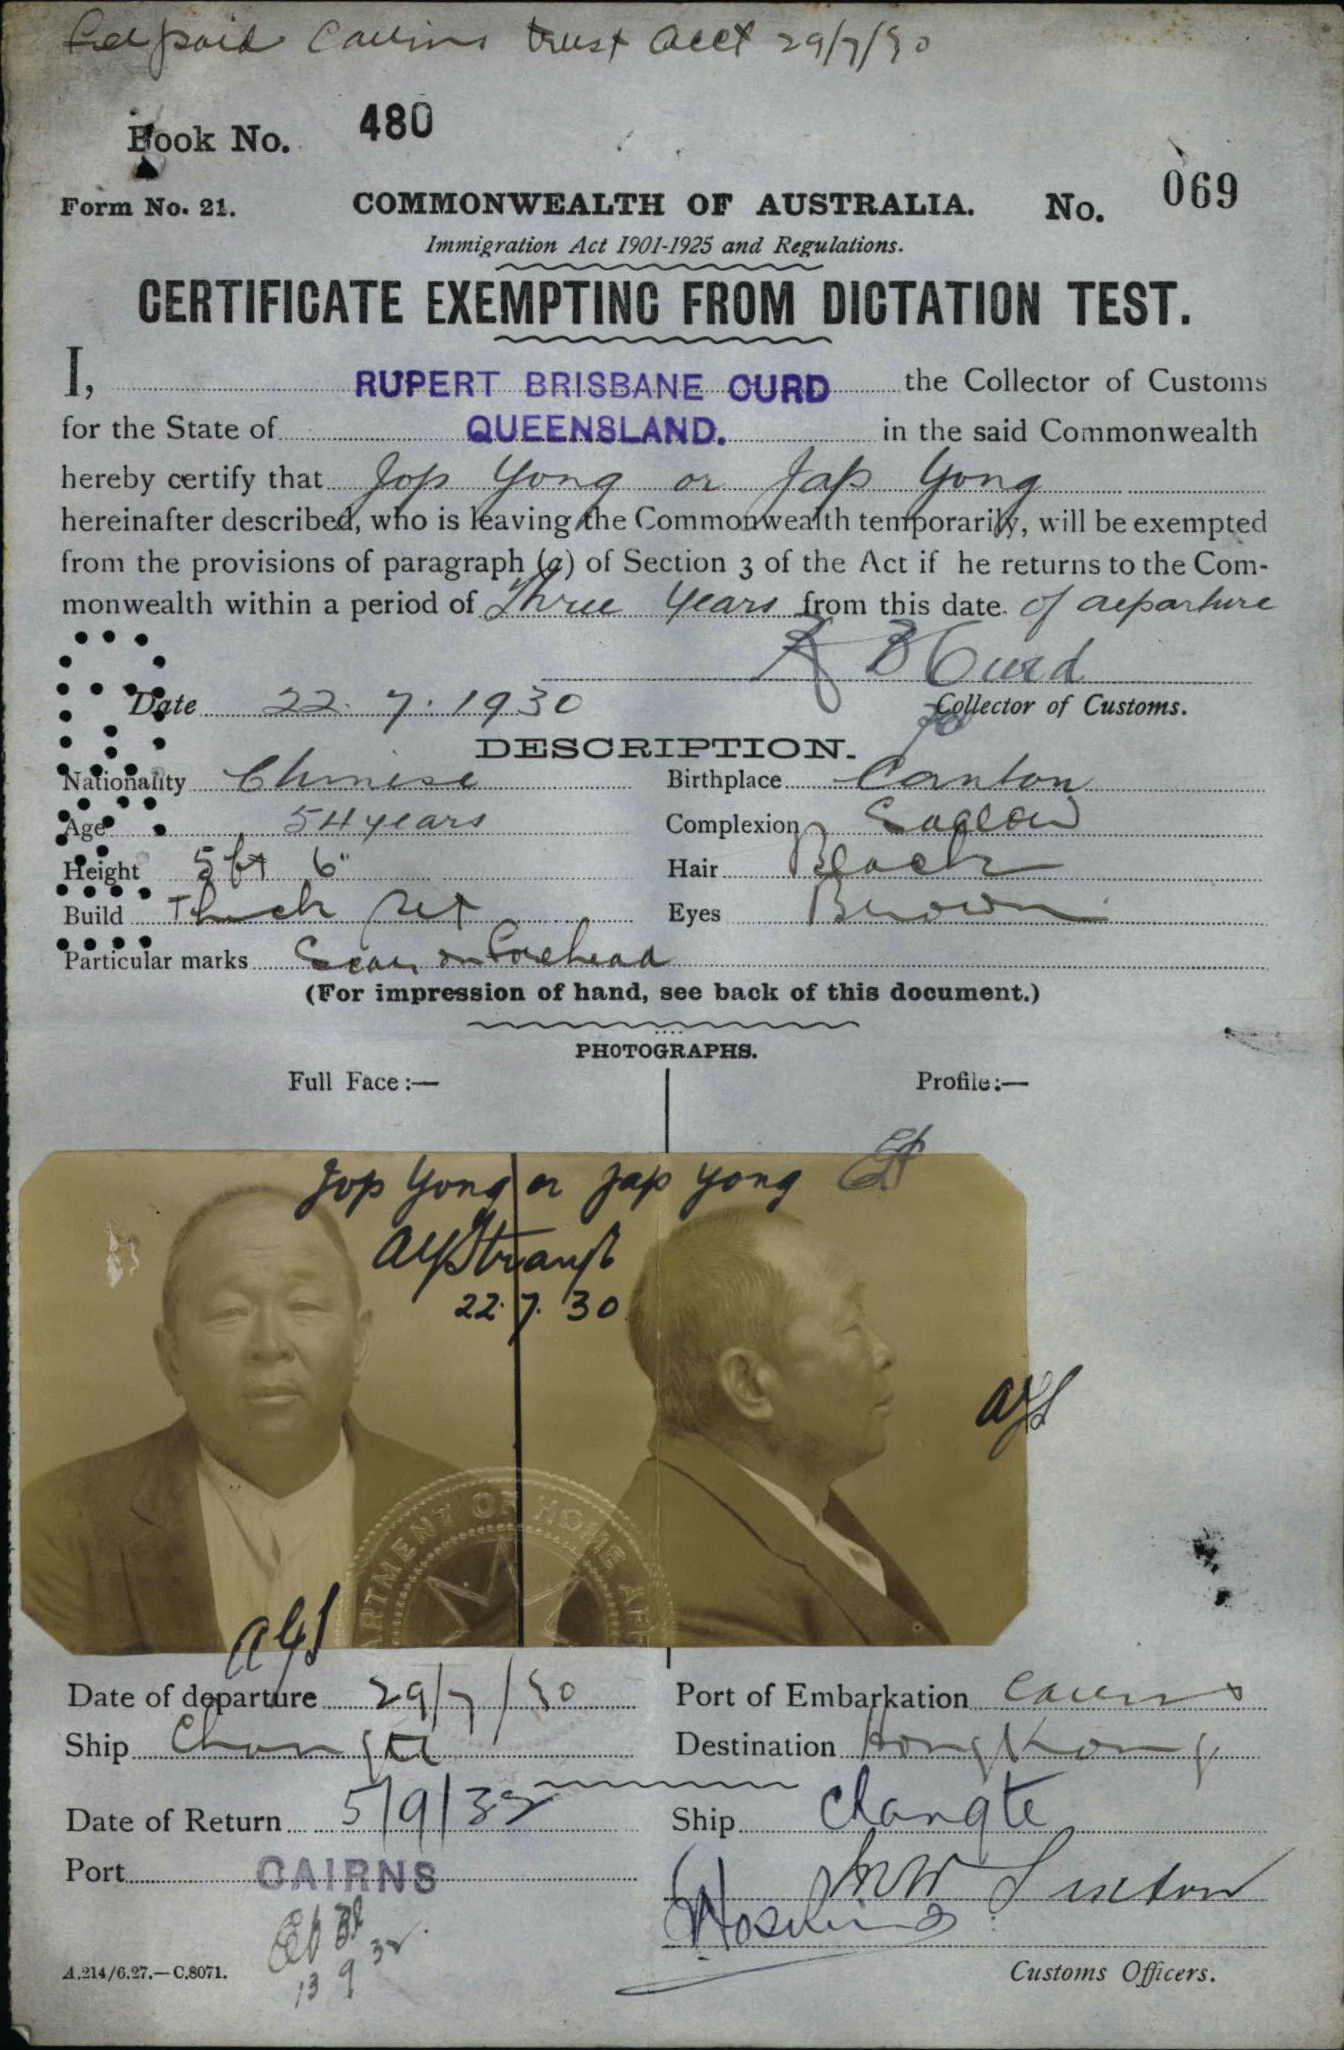 Fee paid Cairns trust acct 29/7/30
Book No. 480
Form No. 21. COMMONWEALTH OF AUSTRALIA. No. 069
Immigration Act 1901-1925 and Regulations.
CERTIFICATE EXEMPTING FROM DICTATION TEST.
I, RUPERT BRISBANE CURD the Collector of Customs
for the State of QUEENSLAND. in the said Commonwealth
hereby certify that Jop Yong or Jap Yong
hereinafter described, who is leaving the Commonwealth temporarily, will be exempted
from the provisions of paragraph (a) of Section 3 of the Act if he returns to the Com-
monwealth within a period of Three Years from this date of departure
R B Curd
Date 22.7.1930 Collector of Customs.
DESCRIPTION.
Nationality Chinese Birthplace Canton
Age 54 years Complexion Sallow
Height 5 ft 6" Hair Black
Build Thick set Eyes Brown
Particular marks Scar on Forehead
(For impression of hand, see back of this document.)
PHOTOGRAPHS.
Full Face:— Profile:—
Jop Yong or Jap Yong
22.7.30
AYS
DEPARTMENT OF HOME AFF
AYS
Date of departure 29/7/30 Port of Embarkation Cairns
Ship Changte Destination Hong Kong
Date of Return 5/9/32 Ship Changte
Port CAIRNS
13 9 32
A.214/6.27.—C.8071. Customs Officers.